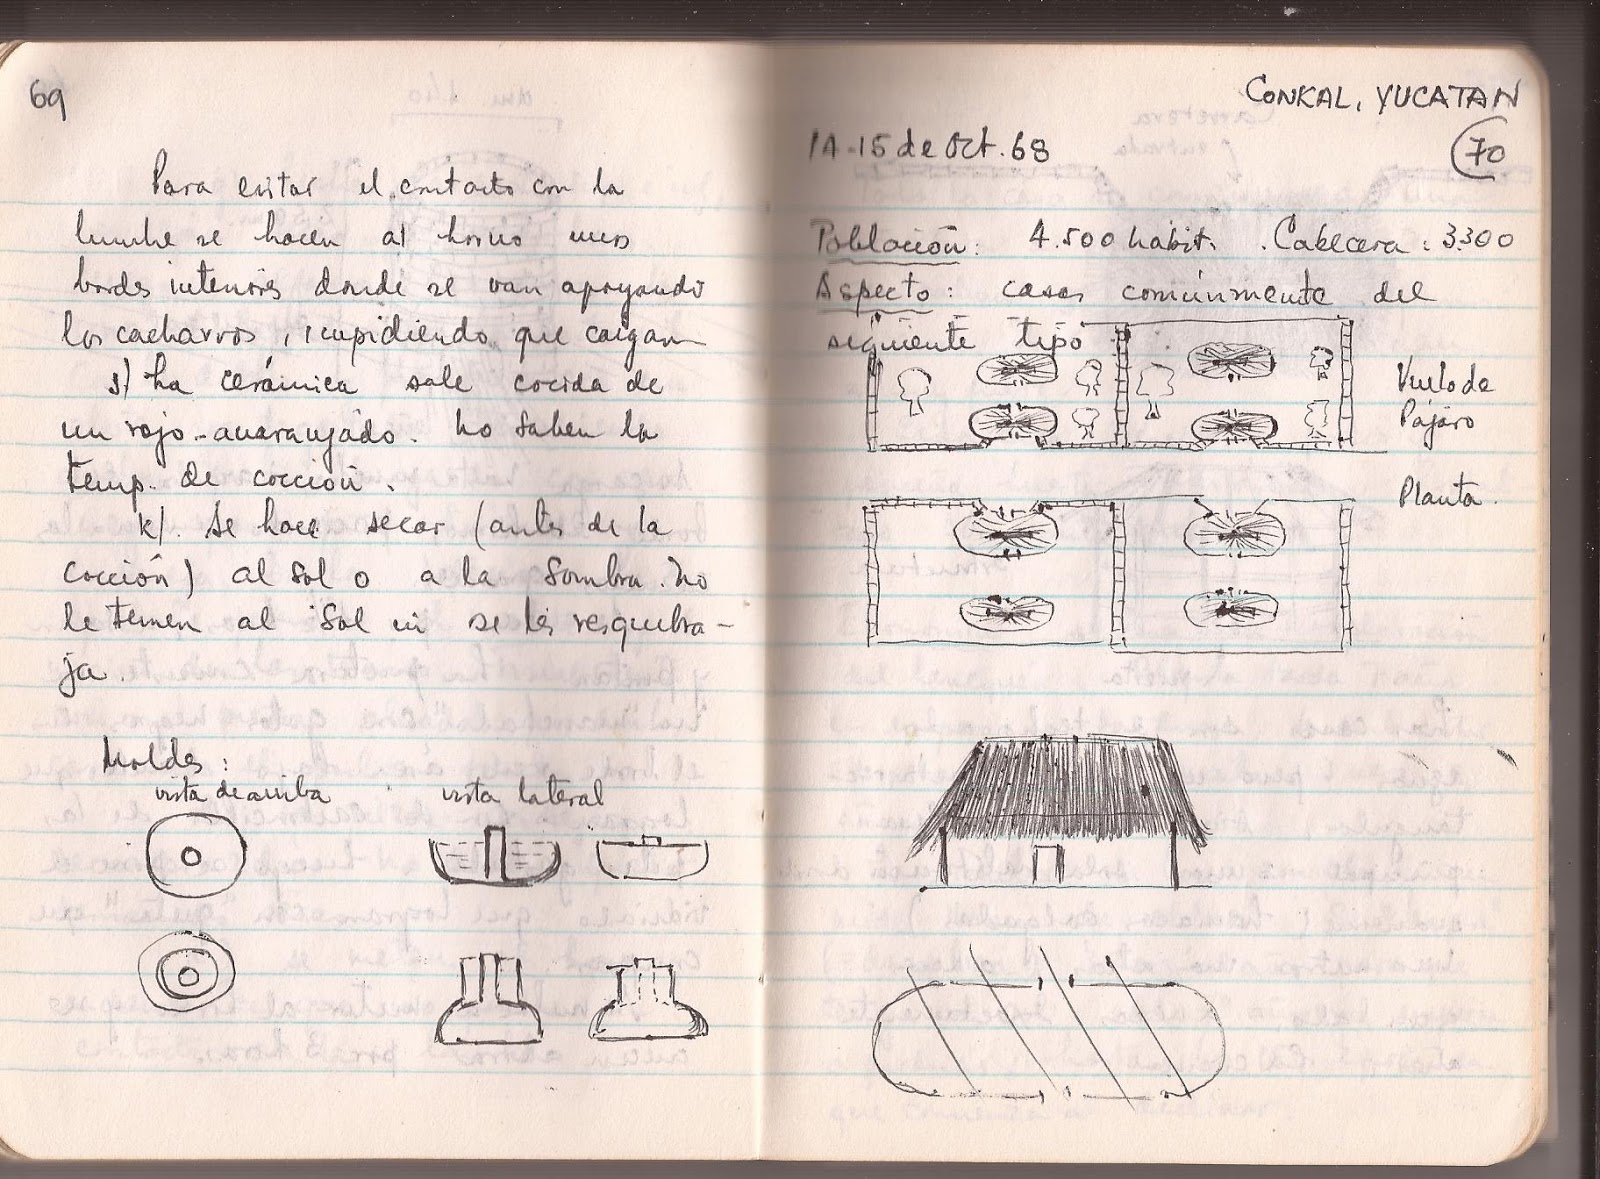 69
Para evitar el contacto con la
lumbre se hacen al horno unos
bordes interiores donde se van apoyando
los cacharros, impidiendo que caigan
j) La cerámica sale cocida de
un rojo-anaranjado. No saben la
temp. de cocción.
k). Se hace secar (antes de la
cocción) al sol o a la sombra. No
le temen al sol ni se les resquebra-
ja.
Moldes:
vista de arriba
vista lateral
CONKAL, YUCATAN
14-15 de Oct. 68
70
Población: 4.500 habit. Cabecera: 3.300
Aspecto: casas comúnmente del
siguiente tipo
Vuelo de
Pájaro
Planta.